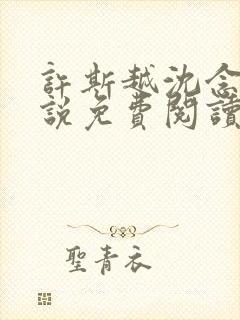 許斯越沈念
說免費閱讀
聖青衣